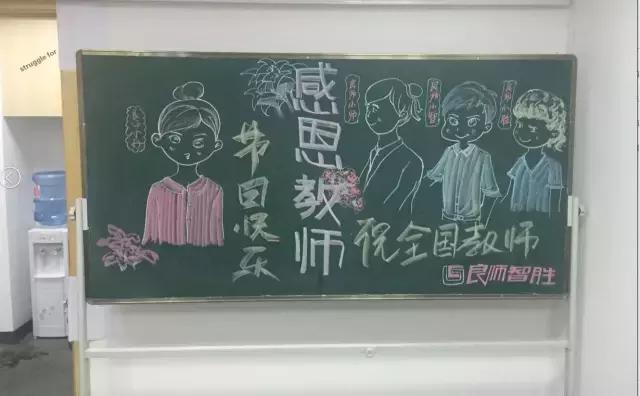 struggle for
感恩教师
祝全国教师
节日快乐
良师智胜